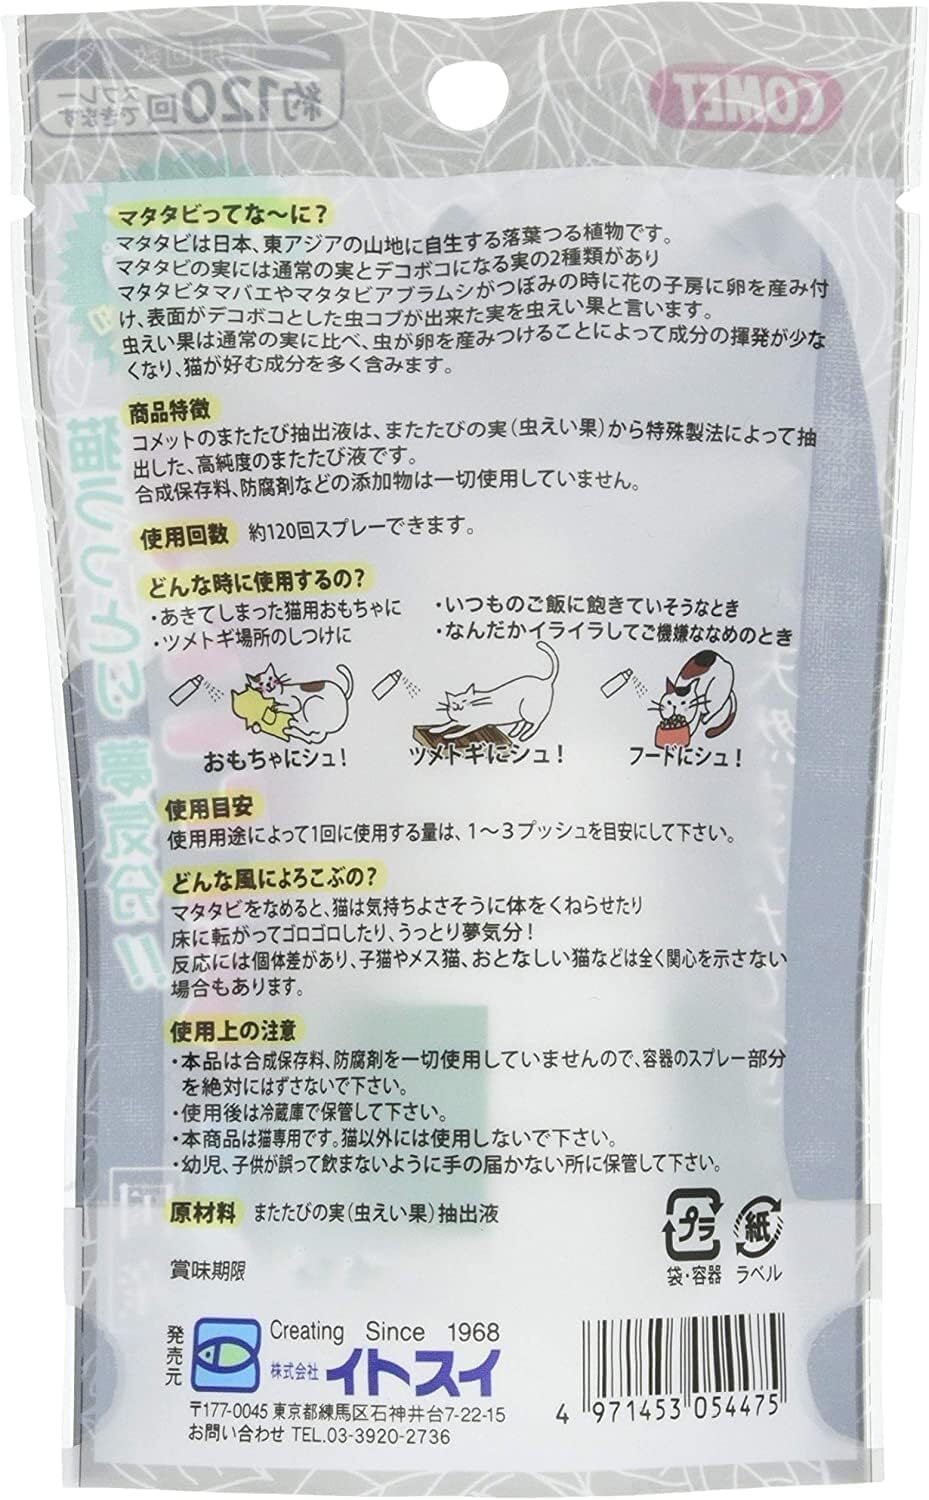 使用回数
約120回
スプレー
できます
COMET
マタタビってな～に？
マタタビは日本、東アジアの山地に自生する落葉つる植物です。
マタタビの実には通常の実とデコボコになる実の2種類があり
マタタビタマバエやマタタビアブラムシがつぼみの時に花の子房に卵を産み付
け、表面がデコボコとした虫コブが出来た実を虫えい果と言います。
虫えい果は通常の実に比べ、虫が卵を産みつけることによって成分の揮発が少な
くなり、猫が好む成分を多く含みます。
商品特徴
コメットのまたたび抽出液は、またたびの実（虫えい果）から特殊製法によって抽
出した、高純度のまたたび液です。
合成保存料、防腐剤などの添加物は一切使用していません。
使用回数 約120回スプレーできます。
どんな時に使用するの？
・あきてしまった猫用おもちゃに
・ツメトギ場所のしつけに
・いつものご飯に飽きていそうなとき
・なんだかイライラしてご機嫌ななめのとき
おもちゃにシュ！
ツメトギにシュ！
フードにシュ！
使用目安
使用用途によって1回に使用する量は、1～3プッシュを目安にして下さい。
どんな風によろこぶの？
マタタビをなめると、猫は気持ちよさそうに体をくねらせたり
床に転がってゴロゴロしたり、うっとり夢気分！
反応には個体差があり、子猫やメス猫、おとなしい猫などは全く関心を示さない
場合もあります。
使用上の注意
・本品は合成保存料、防腐剤を一切使用していませんので、容器のスプレー部分
を絶対にはずさないで下さい。
・使用後は冷蔵庫で保管して下さい。
・本商品は猫専用です。猫以外には使用しないで下さい。
・幼児、子供が誤って飲まないように手の届かない所に保管して下さい。
原材料 またたびの実（虫えい果）抽出液
プラ
袋・容器
紙
ラベル
賞味期限
発売元
Creating Since 1968
株式会社 イトスイ
〒177-0045 東京都練馬区石神井台7-22-15
お問い合わせ TEL.03-3920-2736
4 971453 054475